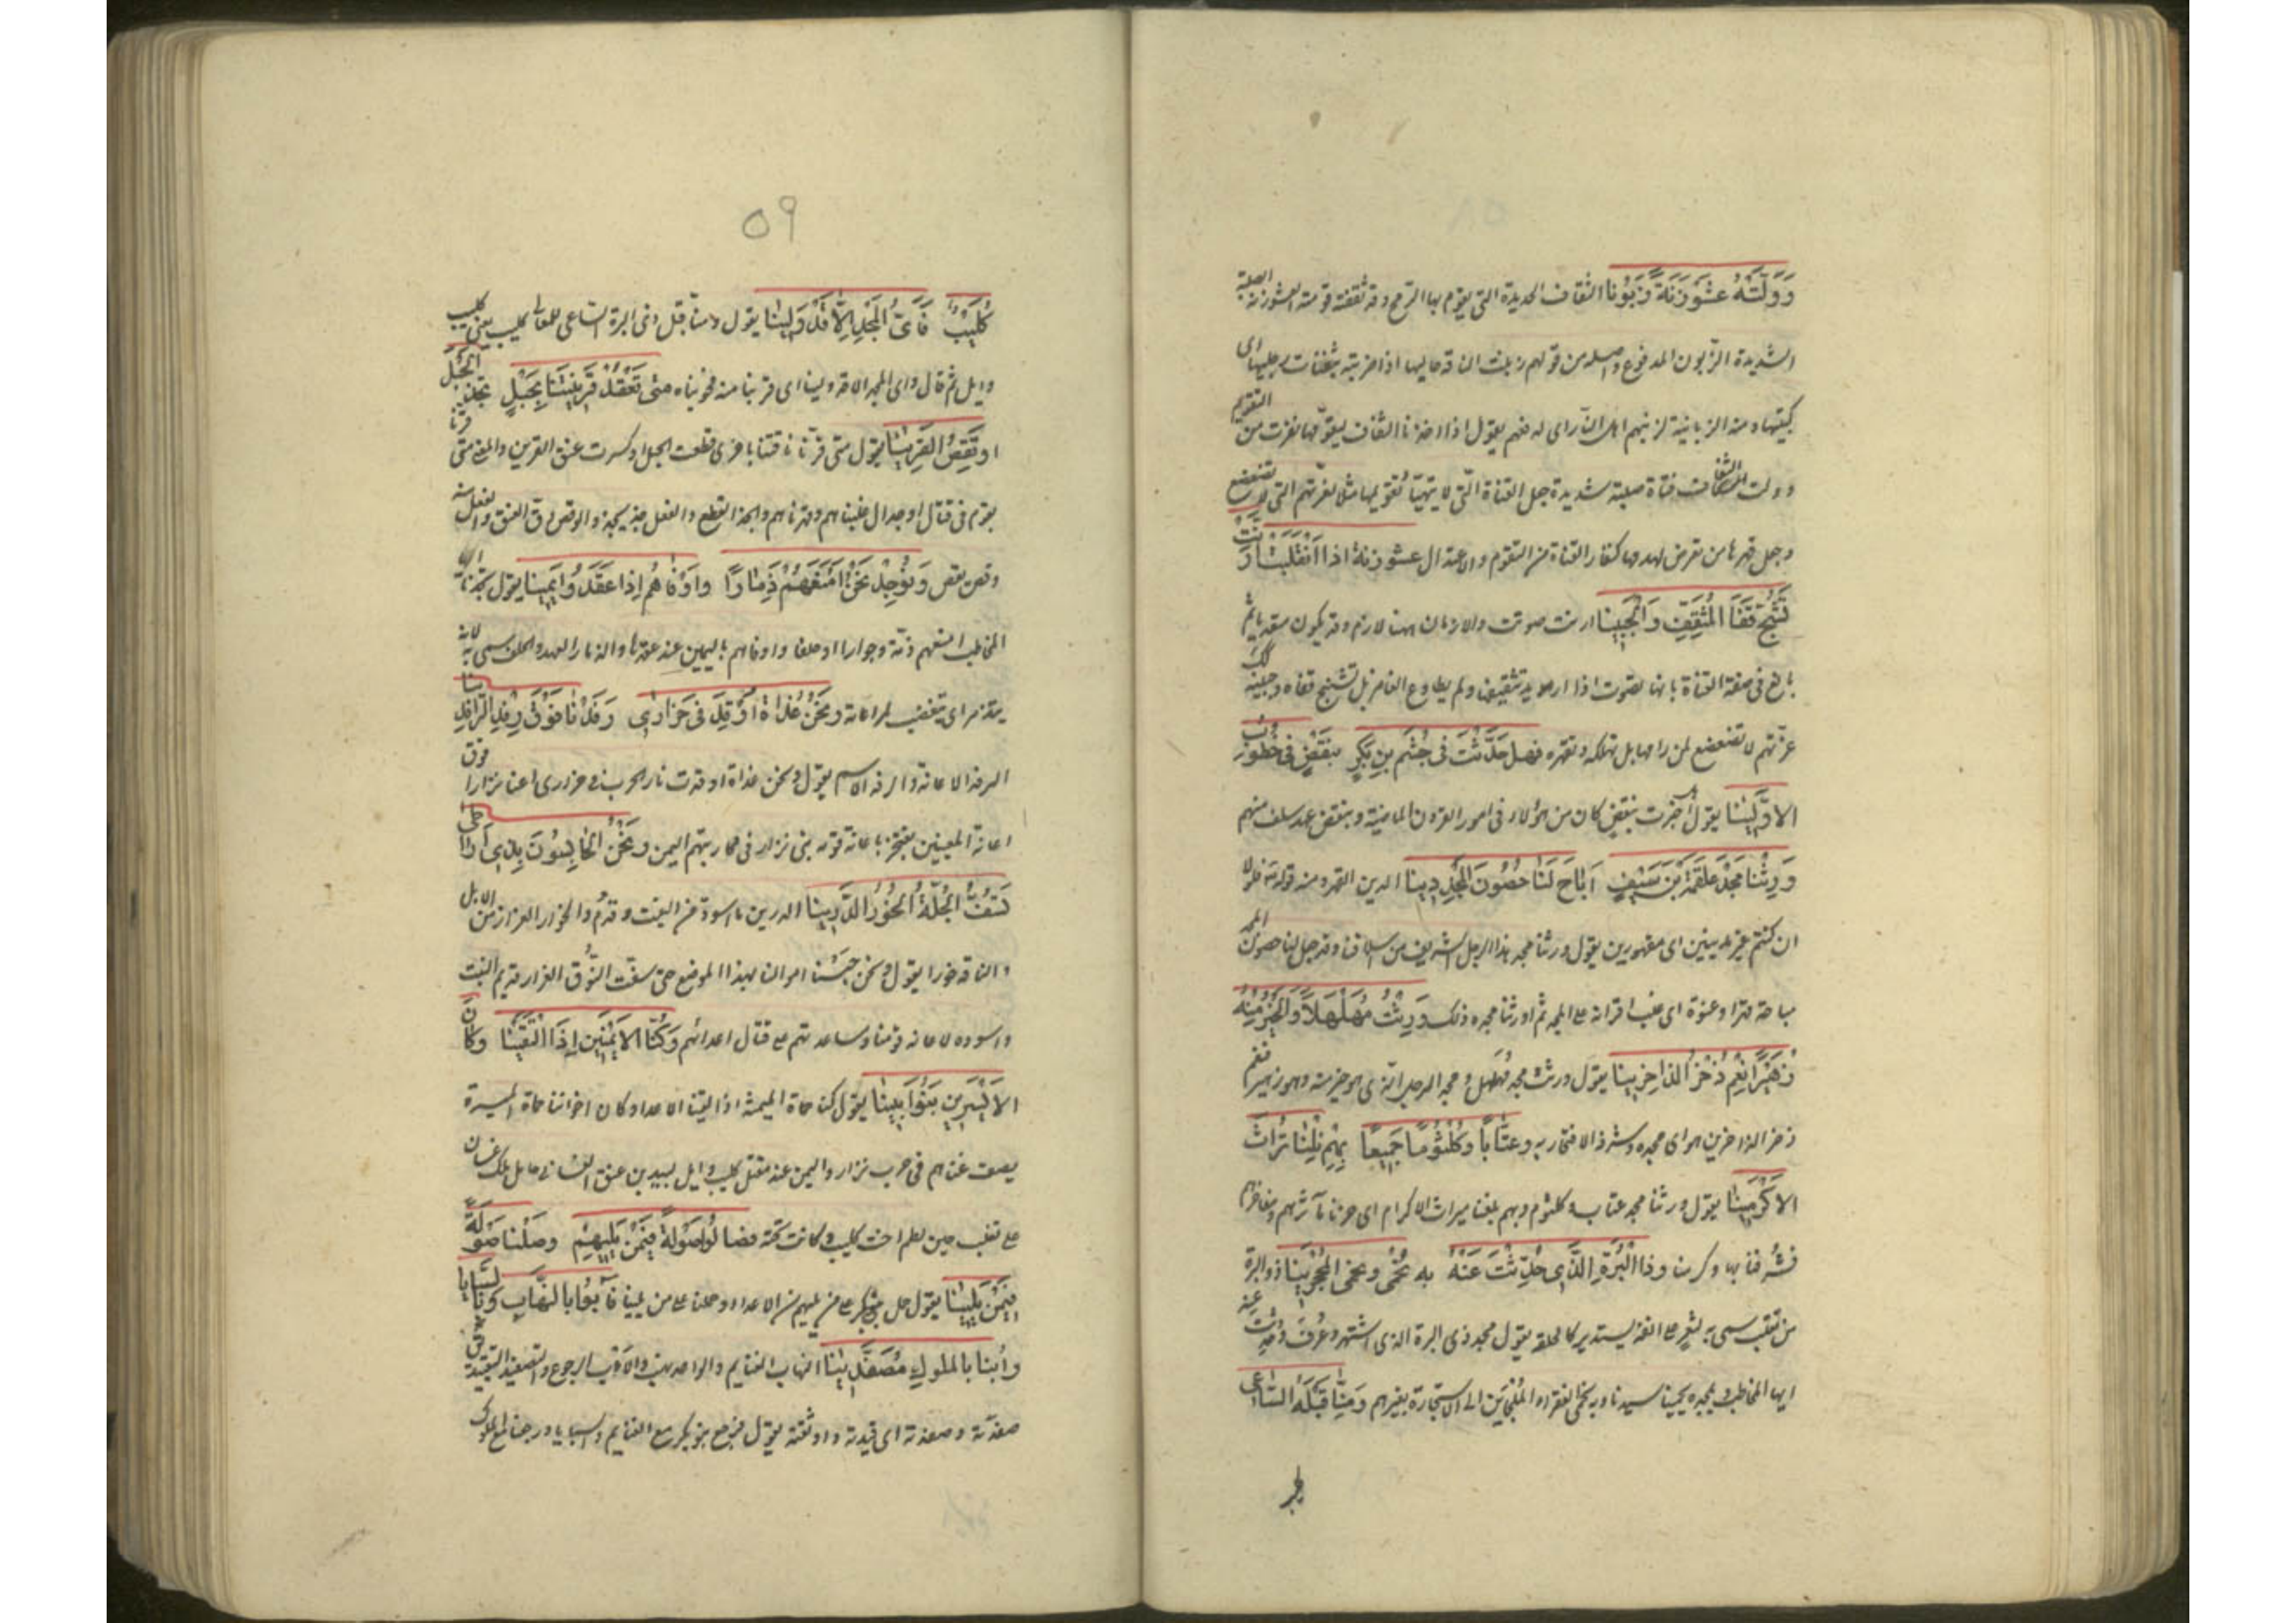 وَوَلَّتْهُ عَشَوْزَنَةً زَبُونَا الثقاف الحديدة التي يقوم بها الرمح وقد ثقفته قومته العشوزنة الصلبة
الشديدة الزبون المدفوع واصله من قولهم زبنت الناقة حالبها اذا ضربته بثفنات رجليها اى
ركبتيها ومنه الزبانية لزبنهم اهل النار اى لدفعهم يقول اذا اخذنا الثقاف ليقومها نفرت من التقويم
وولت الثقاف قناة صلبة شديدة جعل القناة التي لا يتهيأ تقويمها مثلا لعزتهم التي لا تضعضع
وجعل قهرها من تعرض لهدمها كنفار القناة من التقوم والاعتدال عشوزنة اذا انْقَلَبَتْ اَرَنَّتْ
تَشُجُّ قَفَا الْمُثَقِّفِ وَالْجَبِينَا ارنت صوتت والارنان ههنا لازم وقد يكون متعديا ثم
بالغ في صفة القناة بانها تصوت اذا اريد تثقيفها ولم تطاوع الغامز بل تشج قفاه وجبينه كذلك
عزتهم لا تضعضع لمن رامها بل تهلكه وتقهره فهل حُدِّثْتَ فى جُشَمَ بنِ بَكْرٍ بِنَقْصٍ فى خُطُوبِ
الاَوَّلِينَا يقول هل اخبرت بنقص كان من هؤلاء فى امور القرون الماضية وبنقض عهد سلف منهم
وَرِثْنَا مَجْدَ عَلْقَمَةَ بْنِ سَيْفٍ اَبَاحَ لَنَا حُصُونَ الْمَجْدِ دِينَا الدين القهر ومنه قوله تع فلولا
ان كنتم غير مدينين اى مقهورين يقول ورثنا مجد هذا الرجل الشريف من اسلافنا وقد جعل لنا حصون المجد
مباحة قهرا وعنوة اى غلب اقرانه على المجد ثم اورثنا مجده ذلك وَرِثْتُ مُهَلْهِلًا وَالْخَيْرَ مِنْهُ
زُهَيْرًا نِعْمَ ذُخْرُ الذَّاخِرِينَا يقول ورثت مجد مهلهل ومجد الرجل الذى هو خير منه وهو زهير فنعم
ذخر الذاخرين هو اى مجده وشرفه للافتخار به وعَتَّابًا وكُلْثُومًا جَمِيعًا بِهِمْ نِلْنَا تُرَاثَ
الاَكْرَمِينَا يقول ورثنا مجد عتاب وكلثوم وبهم بلغنا ميراث الاكرام اى حزنا مآثرهم ومفاخرهم
فشرفنا بها وكرمنا وذا الْبُرَةِ الَّذِى حُدِّثْتَ عَنْهُ به نُحْمَى ونَحْمِى الْمُحْجَرِينَا ذو البرة
من تغلب سمى به لشعر على انفه يستدير كالحلقة يقول مجد ذى البرة الذى اشتهر وعرف وحدثت عنه
ايها المخاطب وبمجده يحمينا سيدنا وبه نحمى الفقراء الملجئين الى الاستجارة بغيرهم وَمِنَّا قَبْلَهُ السَّاعِى
٥٩
كُلَيْبٌ فَاَىُّ الْمَجْدِ اِلَّا قَدْ وَلِينَا يقول ومنا قبل ذى البرة الساعى للمعالى كليب يعنى كليب
وايل ثم قال واى المجد الا قد ولينا اى قربنا منه فحويناه متى نَعْقِدْ قَرِينَتَنَا بِحَبْلٍ تَجُذُّ الْحَبْلَ
او تَقِصُ الْقَرِينَا يقول متى قرنا ناقتنا باخرى قطعت الحبل او كسرت عنق القرين والمعنى متى قرنا
بقوم فى قتال او جدال غلبناهم وقهرناهم والجذ القطع والفعل جذ يجذ والوقص دق العنق والفعل منه
وقص يقص وَنُوجَدُ نَحْنُ اَمْنَعَهُمْ ذِمَارًا واَوْفَاهُمْ اِذَا عَقَدُوا يَمِينَا يقول تجدنا ايها
المخاطب امنعهم ذمة وجوارا او حلفا واوفاهم باليمين عند عقدها والذمار العهد والحلف سمى به لانه
يتذمر اى يتغضب لمراعاته ونَحْنُ غَدَاةَ اُوقِدَ فى خَزَازَى رَفَدْنَا فَوْقَ رِفْدِ الرَّافِدِينَا
الرفد الاعانة والرفد الاسم يقول ونحن غداة اوقدت نار الحرب فى خزازى اعنا نزارا فوق
اعانة المعينين يفتخر باعانة قومه بنى نزار فى محاربتهم اليمن ونَحْنُ الحَابِسُونَ بِذِى اَرَاطَى
تَسَفُّ الْجِلَّةُ الْخُورُ الدَّرِينَا الدرين ما اسود من النبت وقدم والخور الغزار من الابل
والناقة خوراء يقول ونحن حبسنا اموالنا بهذا الموضع حتى سفت النوق الغزار قديم النبت
واسوده لاعانة قومنا ومساعدتهم على قتال اعدائهم وَكُنَّا الاَيْمَنِينَ اِذَا الْتَقَيْنَا وكَانَ
الاَيْسَرِينَ بَنُو اَبِينَا يقول كنا حماة الميمنة اذا لقينا الاعداء وكان اخواننا حماة الميسرة
يصف غناءهم فى حرب نزار واليمن عند مقتل كليب وايل لبيد بن عنق الغسانى عامل ملك غسان
على تغلب حين لطم اخت كليب وكانت تحته فصَالُوا صَوْلَةً فِيمَنْ يَلِيهِمْ وصُلْنَا صَوْلَةً
فِيمَنْ يَلِينَا يقول حمل بنو بكر على من يليهم من الاعداء وحملنا على من يلينا فَآبُوا بالنِّهَابِ وَبالسَّبَايَا
واُبْنَا بالملوكِ مُصَفَّدِينَا النهاب الغنايم والواحد نهب والاوب الرجوع والتصفيد التقييد يقال
صفدته وصفدته اى قيدته واوثقته يقول فرجع بنو بكر مع الغنايم والسبايا ورجعنا مع الملوك